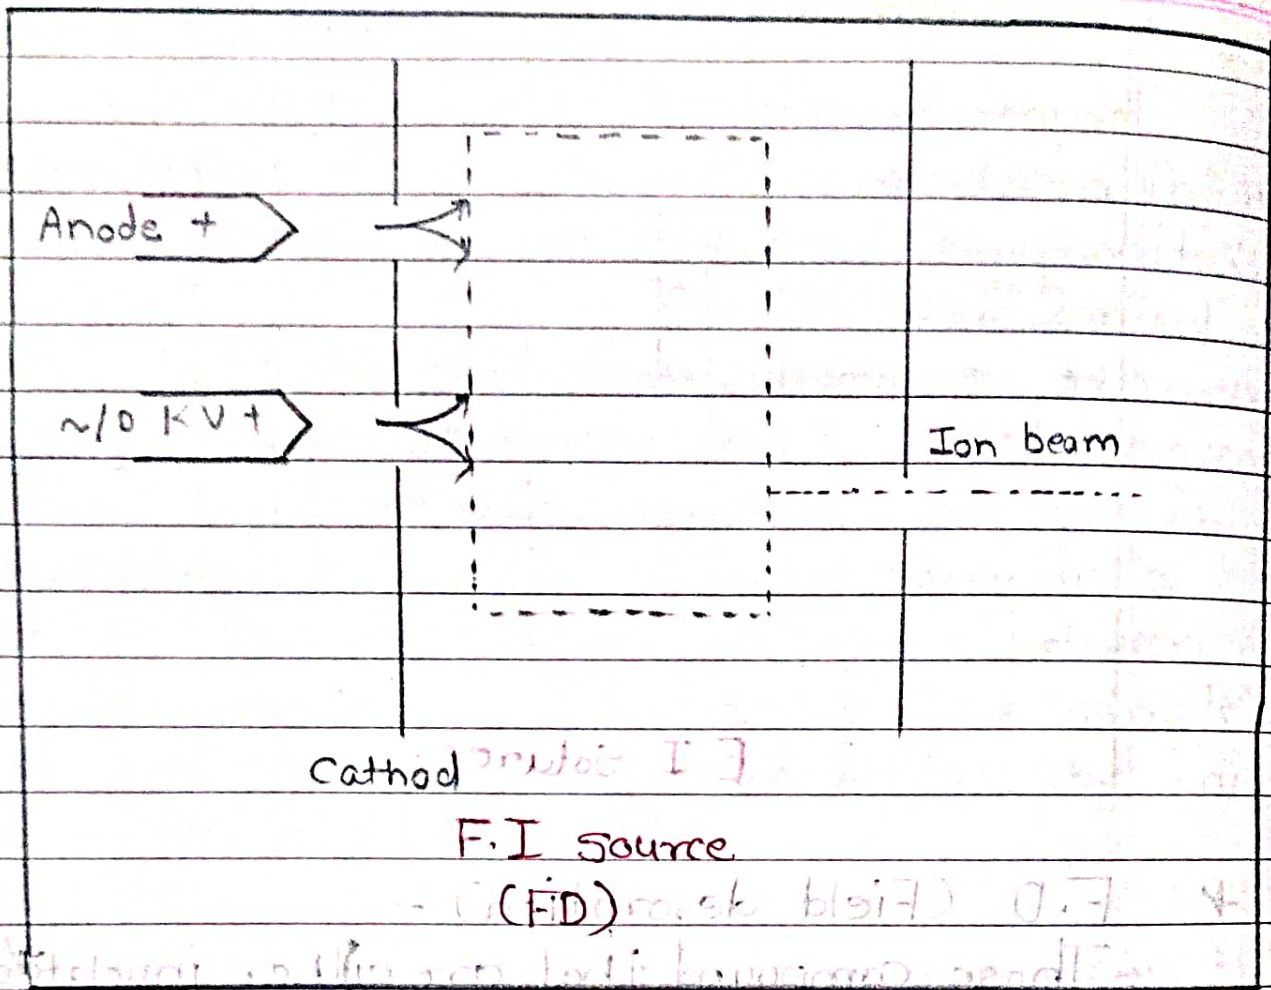 Anode +
~10 KV +
Ion beam
Cathod
F.I source
(FD)